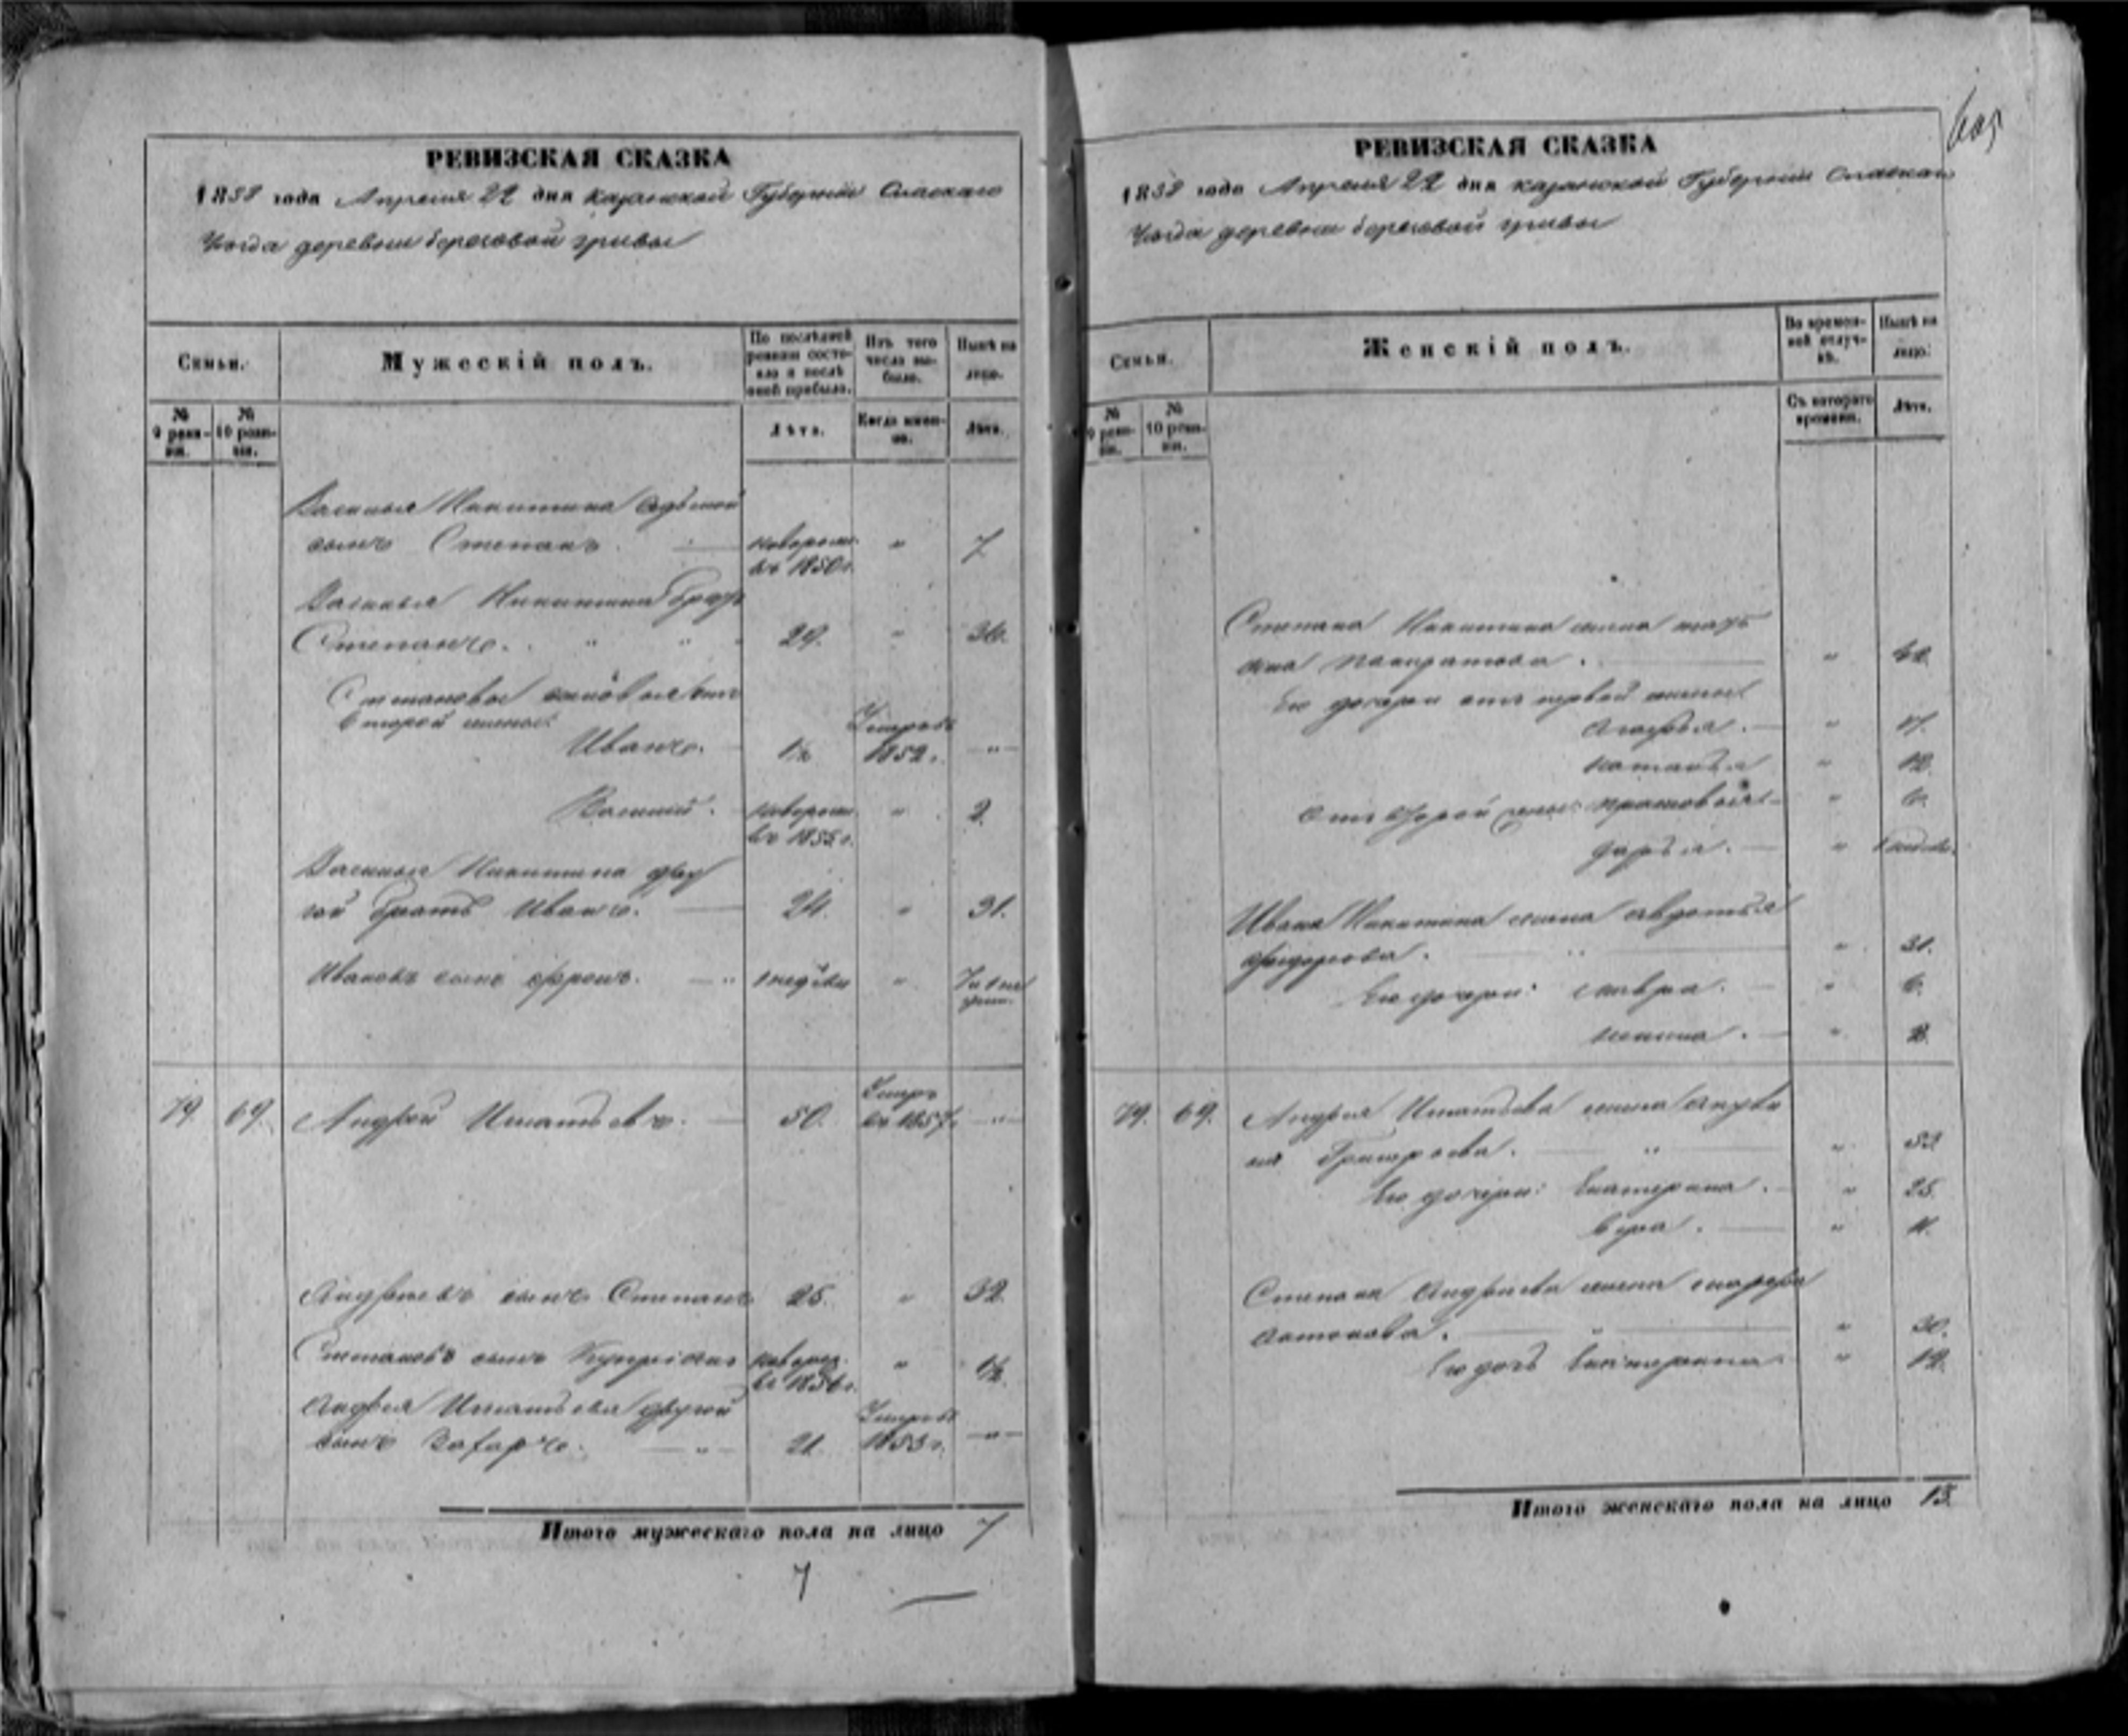 РЕВИЗСКАЯ СКАЗКА
1858 года Апреля 22 дня Казанской Губернии Спаскаго
Уезда деревни березовой гривы
Семьи.
Мужескій полъ.
По послѣдней ревизіи состояло и послѣ оной прибыло.
Изъ того числа выбыло.
Нынѣ на лицо.
№ 9 ревизіи.
№ 10 ревизіи.
Лѣта.
Когда именно.
Лѣта.
Василья Никитина седьмой
сынъ Степанъ новорож. въ 1850 г. " 7
Василья Никитина братъ
Степанъ. 29. " 36.
Степановы сыновья отъ
второй жены:
Иванъ. 1½ Умеръ въ 1852 г. "
Василий. новорож. въ 1855 г. " 2.
Василья Никитина дру
гой братъ Иванъ. 24. " 31.
Ивановъ сынъ 1 недѣли "
79. 69. Андрей Игнатьевъ. 50. Умеръ въ 1857 г. "
Андреевъ сынъ Степанъ 25. " 32.
Степановъ сынъ Купріянъ новорож. въ 1856 г. " 1½.
Андрея Игнатьева другой
сынъ Захаръ. " 21. Умеръ въ 1853 г. "
Итого мужескаго пола на лицо 7
7
605
РЕВИЗСКАЯ СКАЗКА
1858 года Апреля 22 дня Казанской Губернии Спаскаго
Уезда деревни березовой гривы
Семьи.
Женскій полъ.
Во временной отлучкѣ.
Нынѣ на лицо.
№ 9 ревизіи.
№ 10 ревизіи.
Съ котораго времени.
Лѣта.
Степана Никитина жена мар
яна Панкратова. "
Его дочери отъ первой жены:
Агафья. " 17.
Наталья " 12.
Отъ второй жены: " 6.
Дарья. "
Ивана Никитина жена Авдотья
Федорова. " 31.
Его дочери: Мавра. " 6.
" 3.
79. 69. Андрея Игнатьева жена Акули
на Григорьева. " 53
Его дочери: Екатерина. " 25.
Вера. " 11.
Степана Андреева жена
Антонова. " 30.
Его дочь Екатерина. " 12.
Итого женскаго пола на лицо 13.